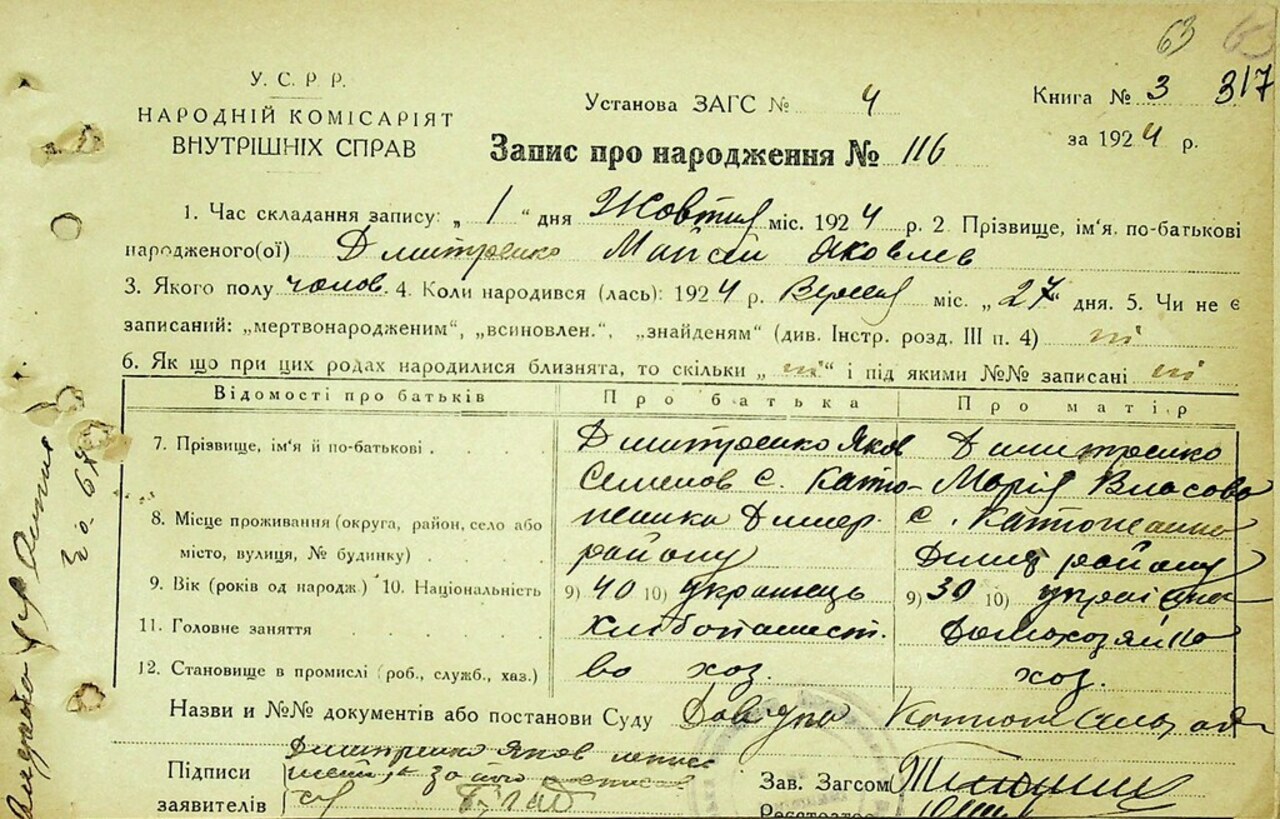 63 63
У. С. Р. Р.
НАРОДНІЙ КОМІСАРІЯТ
ВНУТРІШНІХ СПРАВ
Установа ЗАГС № 4
Книга № 3 317
за 1924 р.
Запис про народження № 116
1. Час складання запису: „ 1 “ дня Жовтня міс. 1924 р. 2. Прізвище, ім'я, по-батькові
народженого(ої) Дмитренко Яковлев
3. Якого полу чолов. 4. Коли народився (лась): 1924 р. Вересня міс. „ 27 “ дня. 5. Чи не є
записаний: „мертвонародженим“, „всиновлен.“, „знайденям“ (див. Інстр. розд. III п. 4) ні
6. Як що при цих родах народилися близнята, то скільки „ ні “ і під якими №№ записані ні
Відомості про батьків Про батька Про матір
7. Прізвище, ім'я й по-батькові Дмитренко Яков Дмитренко
Семенов с. Катю- Марія Власова
8. Місце проживання (округа, район, село або жанка Димер. с. Катюжанка
місто, вулиця, № будинку) району Димер району
9. Вік (років од народж.) 10. Національність 9) 40 10) українець 9) 30 10) українка
11. Головне заняття хлібопашест. домохозяйка
12. Становище в промислі (роб., служб., хаз.) во хоз. хоз.
Назви и №№ документів або постанови Суду Довідка
Підписи Дмитренко Яков
заявителів
Зав. Загсом
Реєстратор